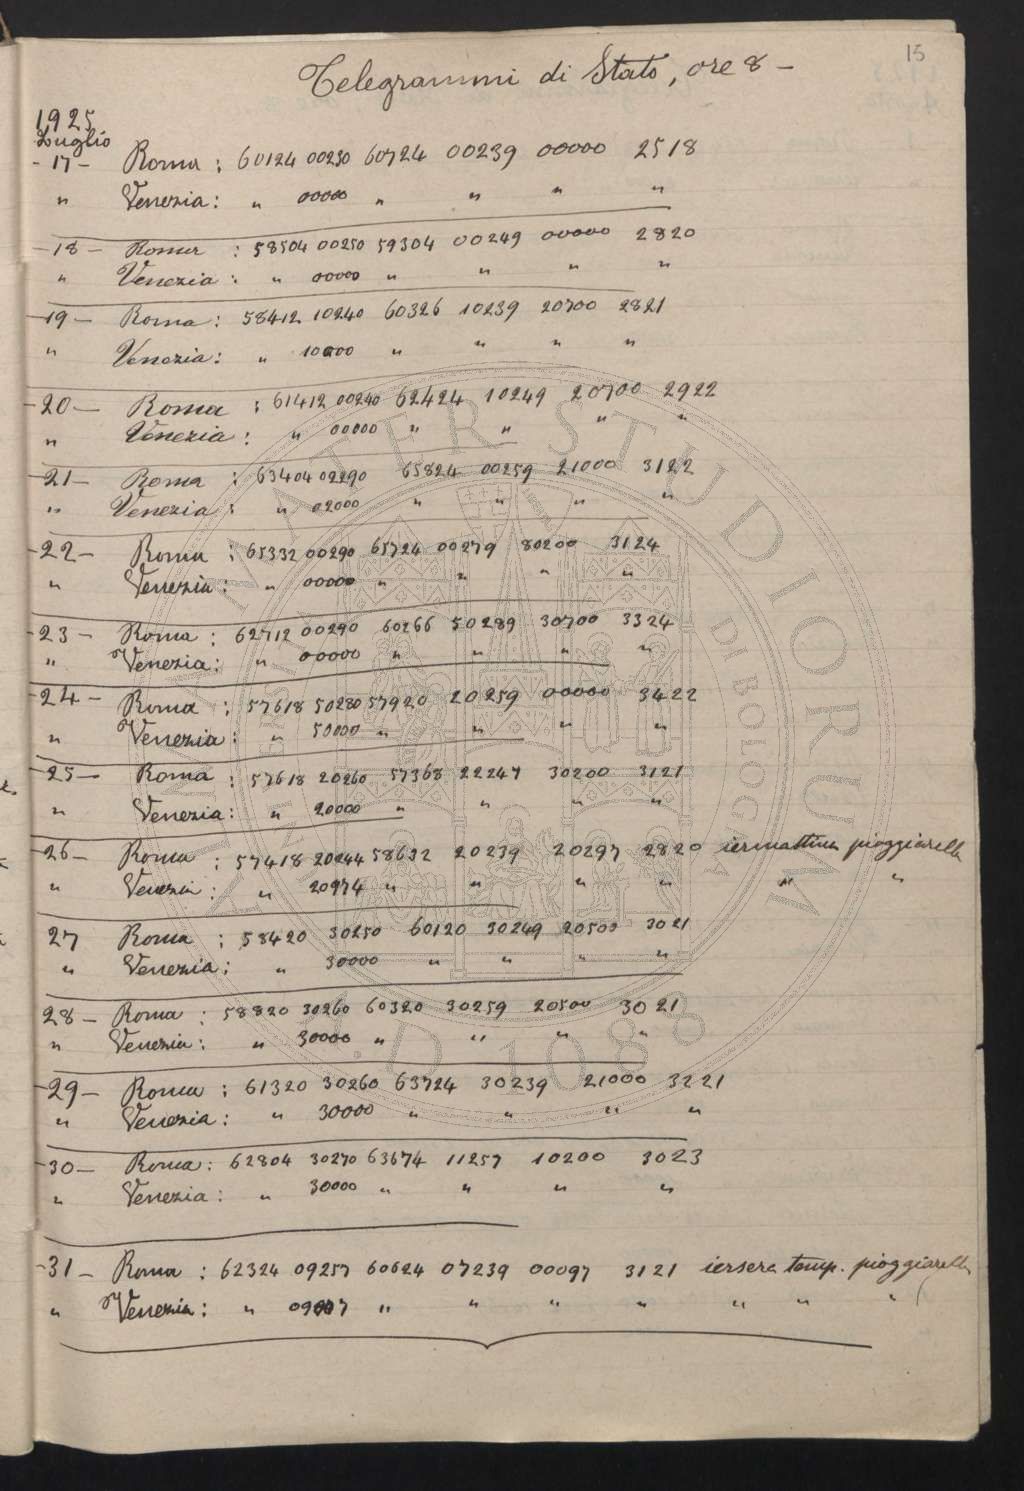 15
Telegrammi di Stato, ore 8 -
1925
Luglio
- 17 - Roma : 60124 00250 60724 00239 00000 2518
" Venezia : " 00000 " " " "
- 18 - Roma : 58504 00250 59304 00249 00000 2820
" Venezia : " 00000 " " " "
- 19 - Roma : 58412 10240 60326 10239 20700 2821
" Venezia : " 10000 " " " "
- 20 - Roma : 61412 00240 62424 10249 20700 2922
" Venezia : " 00000 " " " "
- 21 - Roma : 63404 02290 65824 00259 21000 3122
" Venezia : " 02000 " " " "
- 22 - Roma : 65332 00290 65724 00279 80200 3124
" Venezia : " 00000 " " " "
- 23 - Roma : 62712 00290 60266 50289 30700 3324
" Venezia : " 00000 " " " "
- 24 - Roma : 57618 50280 57920 20259 00000 3422
" Venezia : " 50000 " " " "
- 25 - Roma : 57618 20260 57368 22247 30200 3121
" Venezia : " 20000 " " " "
- 26 - Roma : 57418 20244 58632 20239 20297 2820 iermattina pioggiarella
" Venezia : " 20974 " " " " " "
27 Roma : 58420 30250 60120 30249 20500 3021
" Venezia : " 30000 " " " "
28 - Roma : 58820 30260 60320 30259 20500 3021
" Venezia : " 30000 " " " "
- 29 - Roma : 61320 30260 63724 30239 21000 3221
" Venezia : " 30000 " " " "
- 30 - Roma : 62804 30270 63674 11257 10200 3023
" Venezia : " 30000 " " " "
- 31 - Roma : 62324 09257 60624 07239 00097 3121 iersera temp. pioggiarella
" Venezia : " " " " " " " "
ALMA MATER STUDIORUM
DI BOLOGNA
A.D. 1088